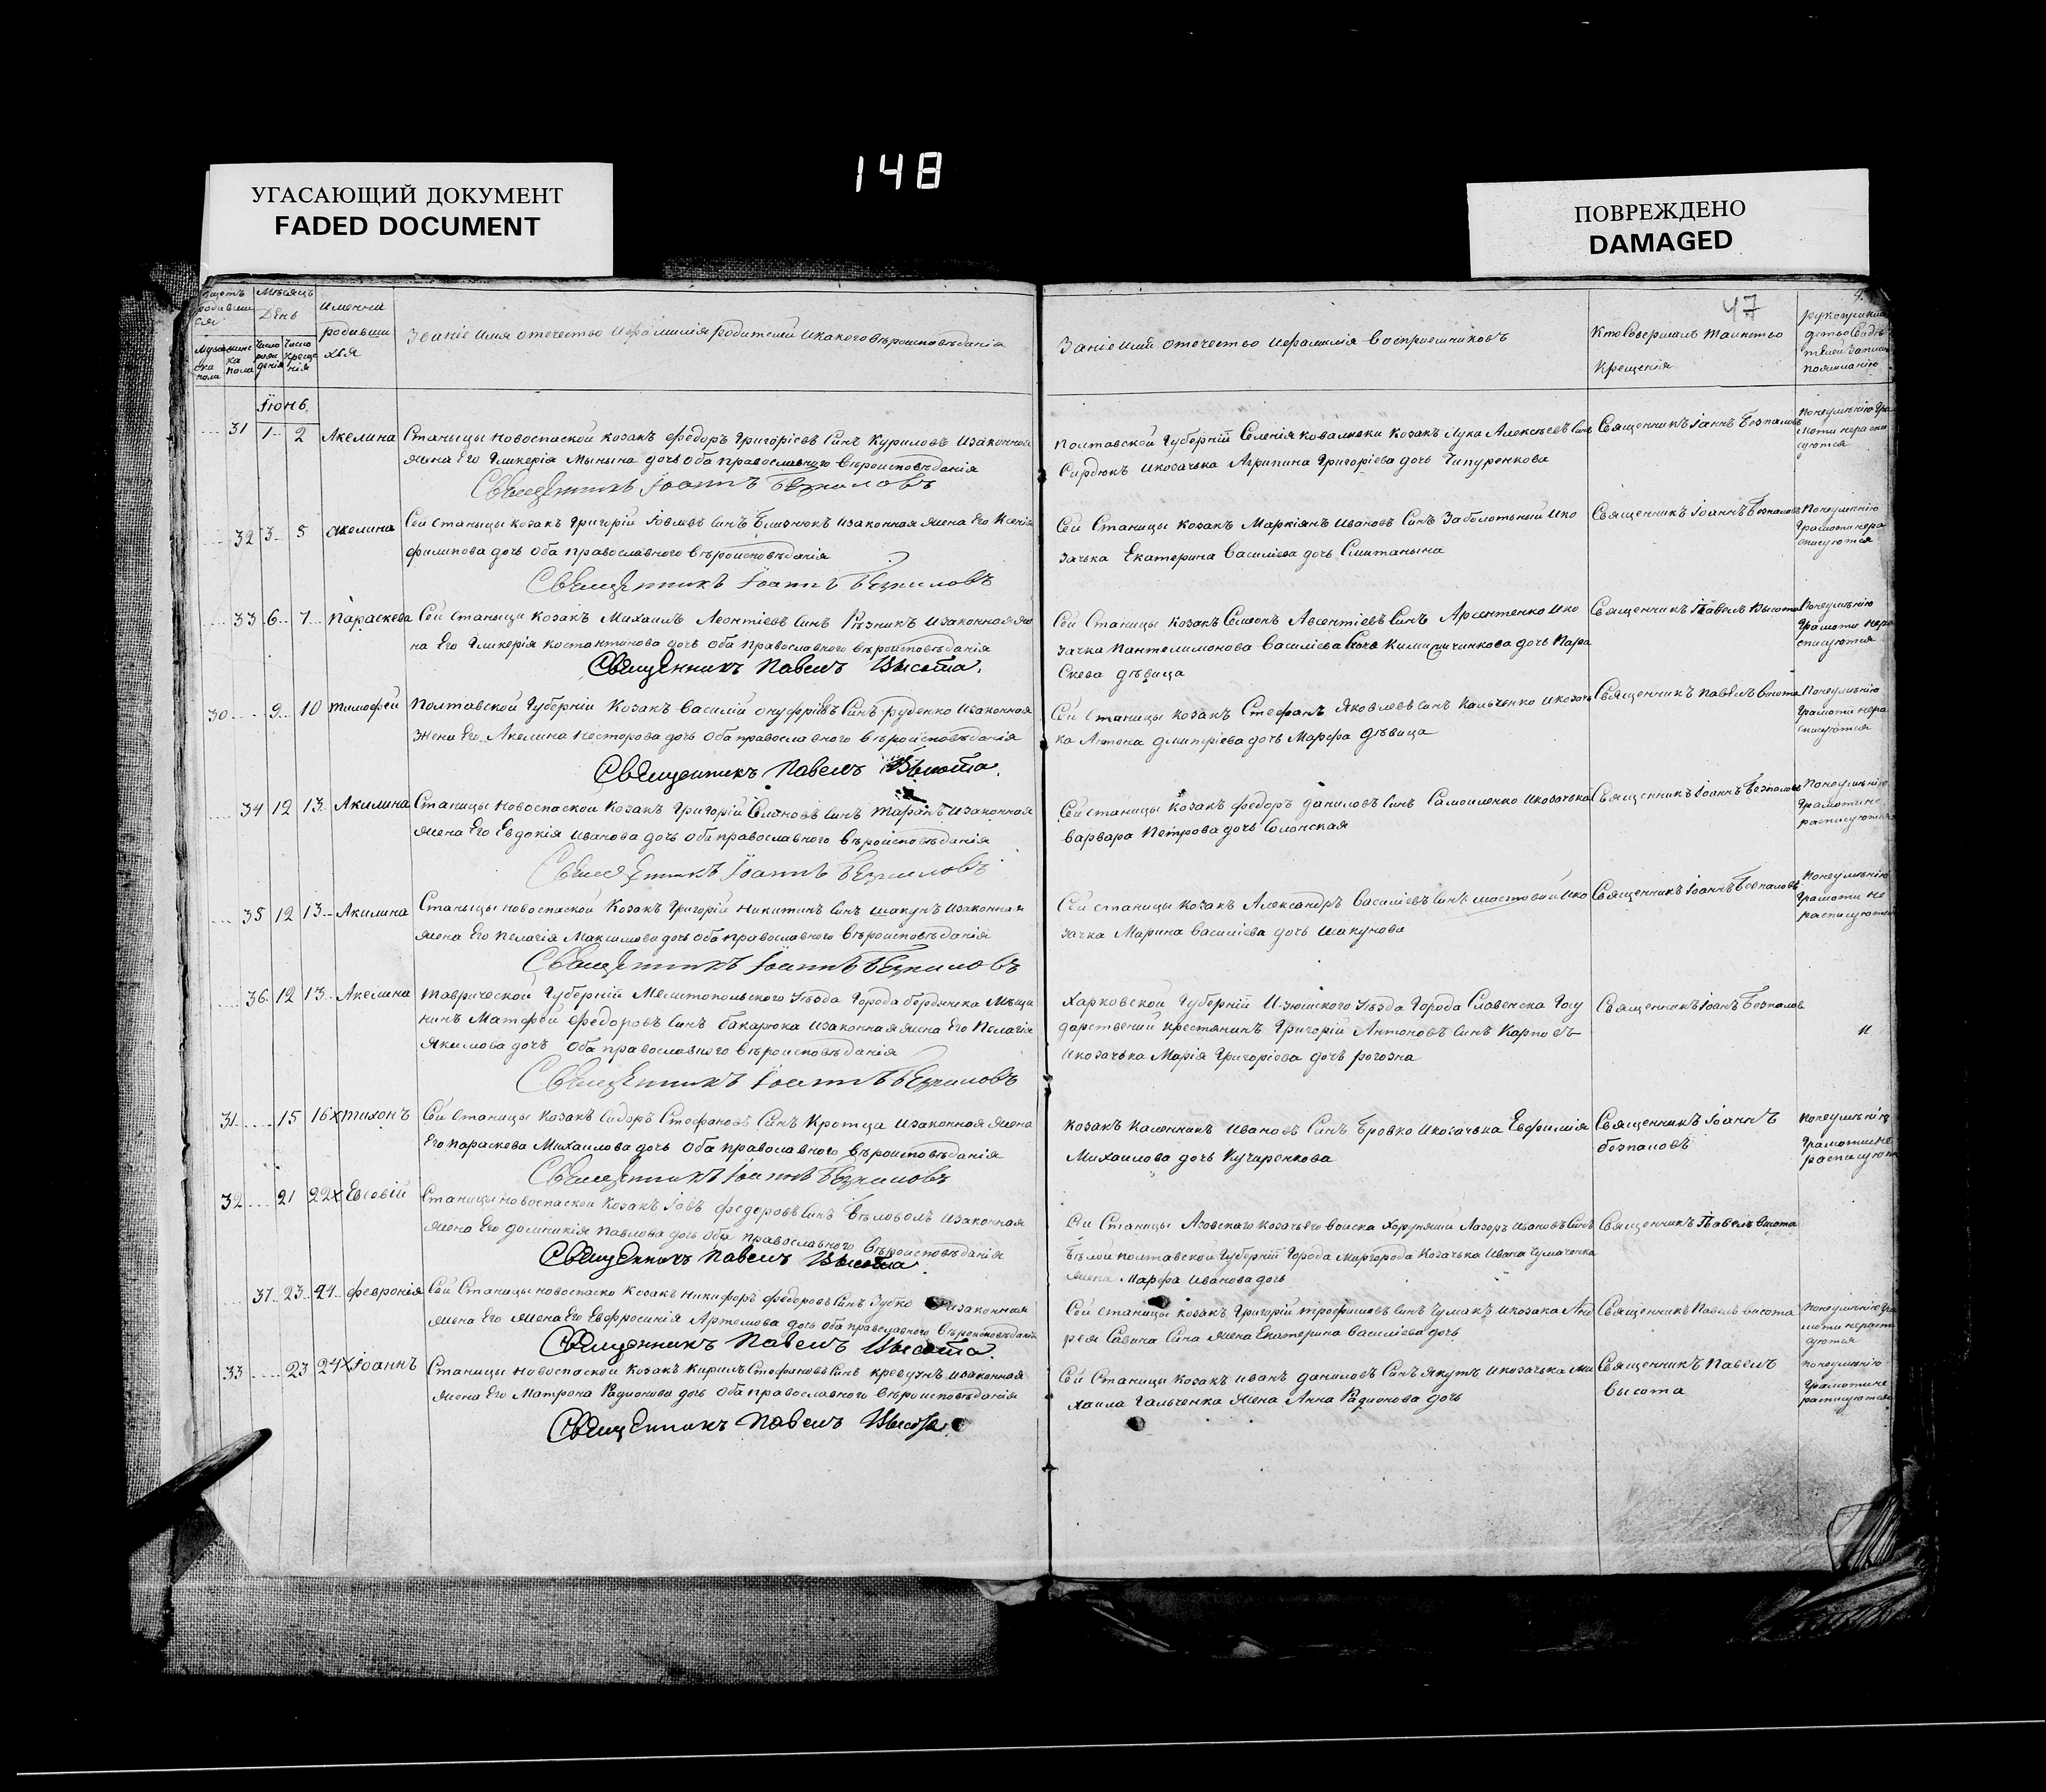 148
УГАСАЮЩИЙ ДОКУМЕНТ
FADED DOCUMENT
ПОВРЕЖДЕНО
DAMAGED
47
Мѣсяцъ
День
имена
родивши
хся
Званіе имя отечество ифамилія родителей икакого вѣроисповѣданія
Званіе имя отечество ифамилія воспріемниковъ
Кто Совершалъ Таинство
Крещенія
Іюнь
31 1 2 Акелина Станыцы новоспаской козакъ федоръ Григоріевъ Синъ Куриловъ изаконная
жена Его Гликерія Мынына дочь оба православного вѣроисповѣданія
Священникъ Іоаннъ Безпаловъ
Полтавской Губерній Селенія ковалювки Козакъ Лука Алексѣевъ Синъ
Сирдюкъ икозачька Агрипина Григоріева дочь Чипуренкова
Священникъ Іоаннъ Безпаловъ
32 3 5 Акелина Сей Станыцы козакъ Григорій Іовлевъ Синъ Близнюкъ изаконная жена Его Ксенія
филипова дочь оба православного вѣроисповѣданія
Священникъ Іоаннъ Безпаловъ
Сей Станицы Козакъ Маркіянъ Ивановъ Синъ Заболотьный ико
зачька Екатерина Василіева дочь Смитанына
Священникъ Іоаннъ Безпаловъ
Понеумѣнію
Грамоти нера
списуютця
33 6 7 Параскева Сей Станыци козакъ Михаилъ Леонтіевъ Синъ Рѣзникъ изаконная же
на Его Гликерія костантинова дочь оба православного вѣроисповѣданія
Священникъ Павелъ Высота.
Сей Станицы козакъ Семіонъ Авсентіевъ Синъ Арсентенко ико
зачка Пантелимонова Василіева дочь Пара
Скева дѣвица
Священникъ Павелъ Высота
Понеумѣнію
Грамоти нера
списуютця
30 9 10 тимофей Полтавской Губерніи Козакъ Василій онуфріевъ Синъ руденко изаконная
Жена Его Акелина Несторова дочь оба православного вѣроисповѣданія
Священникъ Павелъ Высота.
Сей Станицы козакъ Стефанъ Яковлевъ синъ Кальченко икозачь
ка Антона дмитріева дочь Марфа дѣвица
Священникъ Павелъ Висота
Понеумѣнію
Грамоти нера
списуютця
34 12 13 Акилина Станицы Новоспаской Козакъ Григорій Синъ Таранъ изаконная
жена Его Евдокія Иванова дочь оба православного вѣроисповѣданія
Священникъ Іоаннъ Безпаловъ
Сей станицы козакъ федоръ даниловъ Синъ Самоиленко икозачька
варвара Петрова дочь Солонская
Священникъ Іоаннъ Безпаловъ
Понеумѣнію
Грамоти не
расписуютця
35 12 13 Акилина Станыцы новоспаской Козакъ Григорій Никитинъ Синъ шакунъ изаконная
жена Его Пелагія Максимова дочь оба православного вѣроисповѣданія
Священникъ Іоаннъ Безпаловъ
Сей станицы Козакъ Александръ Василіевъ Синъ мостовой ико
зачка Марина василіева дочь шакунова
Священникъ Іоаннъ Безпаловъ
Понеумѣнію
Грамоти не
расписуютця
36 12 13 Акелина таврической Губерній Мелитопольского Уѣзда Города бердянска Мѣща
нинъ Матфей федоровъ Синъ бакарюка изаконная жена Его Пелагія
Якимова дочь оба православного вѣроисповѣданія
Священникъ Іоаннъ Безпаловъ
Харковской Губерній Изюмского Уѣзда Города Славенска Госу
дарственій крестянинъ Григорій Антоновъ Синъ Карповъ
икозачька Марія Григоріева дочь рогозна
Священникъ Іоанъ Безпаловъ
31 15 16 х тихонъ Сей Станицы Козакъ Сидоръ Стефановъ Синъ Кротца изаконная жена
Его параскева Михаилова дочь оба православного вѣроисповѣданія
Священникъ Іоаннъ Безпаловъ
козакъ Каленникъ Ивановъ Синъ Бровко икозачька Евфимія
Михаилова дочь Кучеренкова
Священникъ Іоаннъ
безпаловъ
Понеумѣнію
Грамоти не
расписуютця
32 21 22 х Евсевій Станицы новоспаской Козакъ Іовъ федоровъ Синъ Бѣловолъ изаконная
жена Его домникія Павлова дочь оба православного вѣроисповѣданія
Священникъ Павелъ Высота.
Сій Станицы Азовскаго козачьяго войска Хорунжий Лазоръ ивановъ Синъ
Бѣлой полтавской Губерній Города Миргорода Козачька ивана Чумаченка
жена Марфа Иванова дочь
Священникъ Павелъ Висота
37 23 24 февронія Сей Станицы новоспаско Козакъ Никифоръ федоровъ Синъ Зубко изаконная
жена Его жена Его Евфросинія Артемова дочь оба православного вѣроисповѣданія
Священникъ Павелъ Высота.
Сей станицы козакъ Григорій трофимовъ Синъ Чумакъ икозака Анд
рея Савина Сина жена Екатерина Василіева дочь
Священникъ Павелъ высота
33 23 24 х Іоаннъ Станицы новоспаской Козакъ Кирилъ Стефановъ Синъ кревунъ изаконная
жена Его Матрона Радионова дочь оба православного вѣроисповѣданія
Священникъ Павелъ Высота
Сей Станицы Козакъ иванъ даниловъ Синъ Якутъ икозачька Ми
хаила Гальченка жена Анна Радионова дочь
Священникъ Павелъ
высота
понеумѣнію
Грамоти не
расписуютця